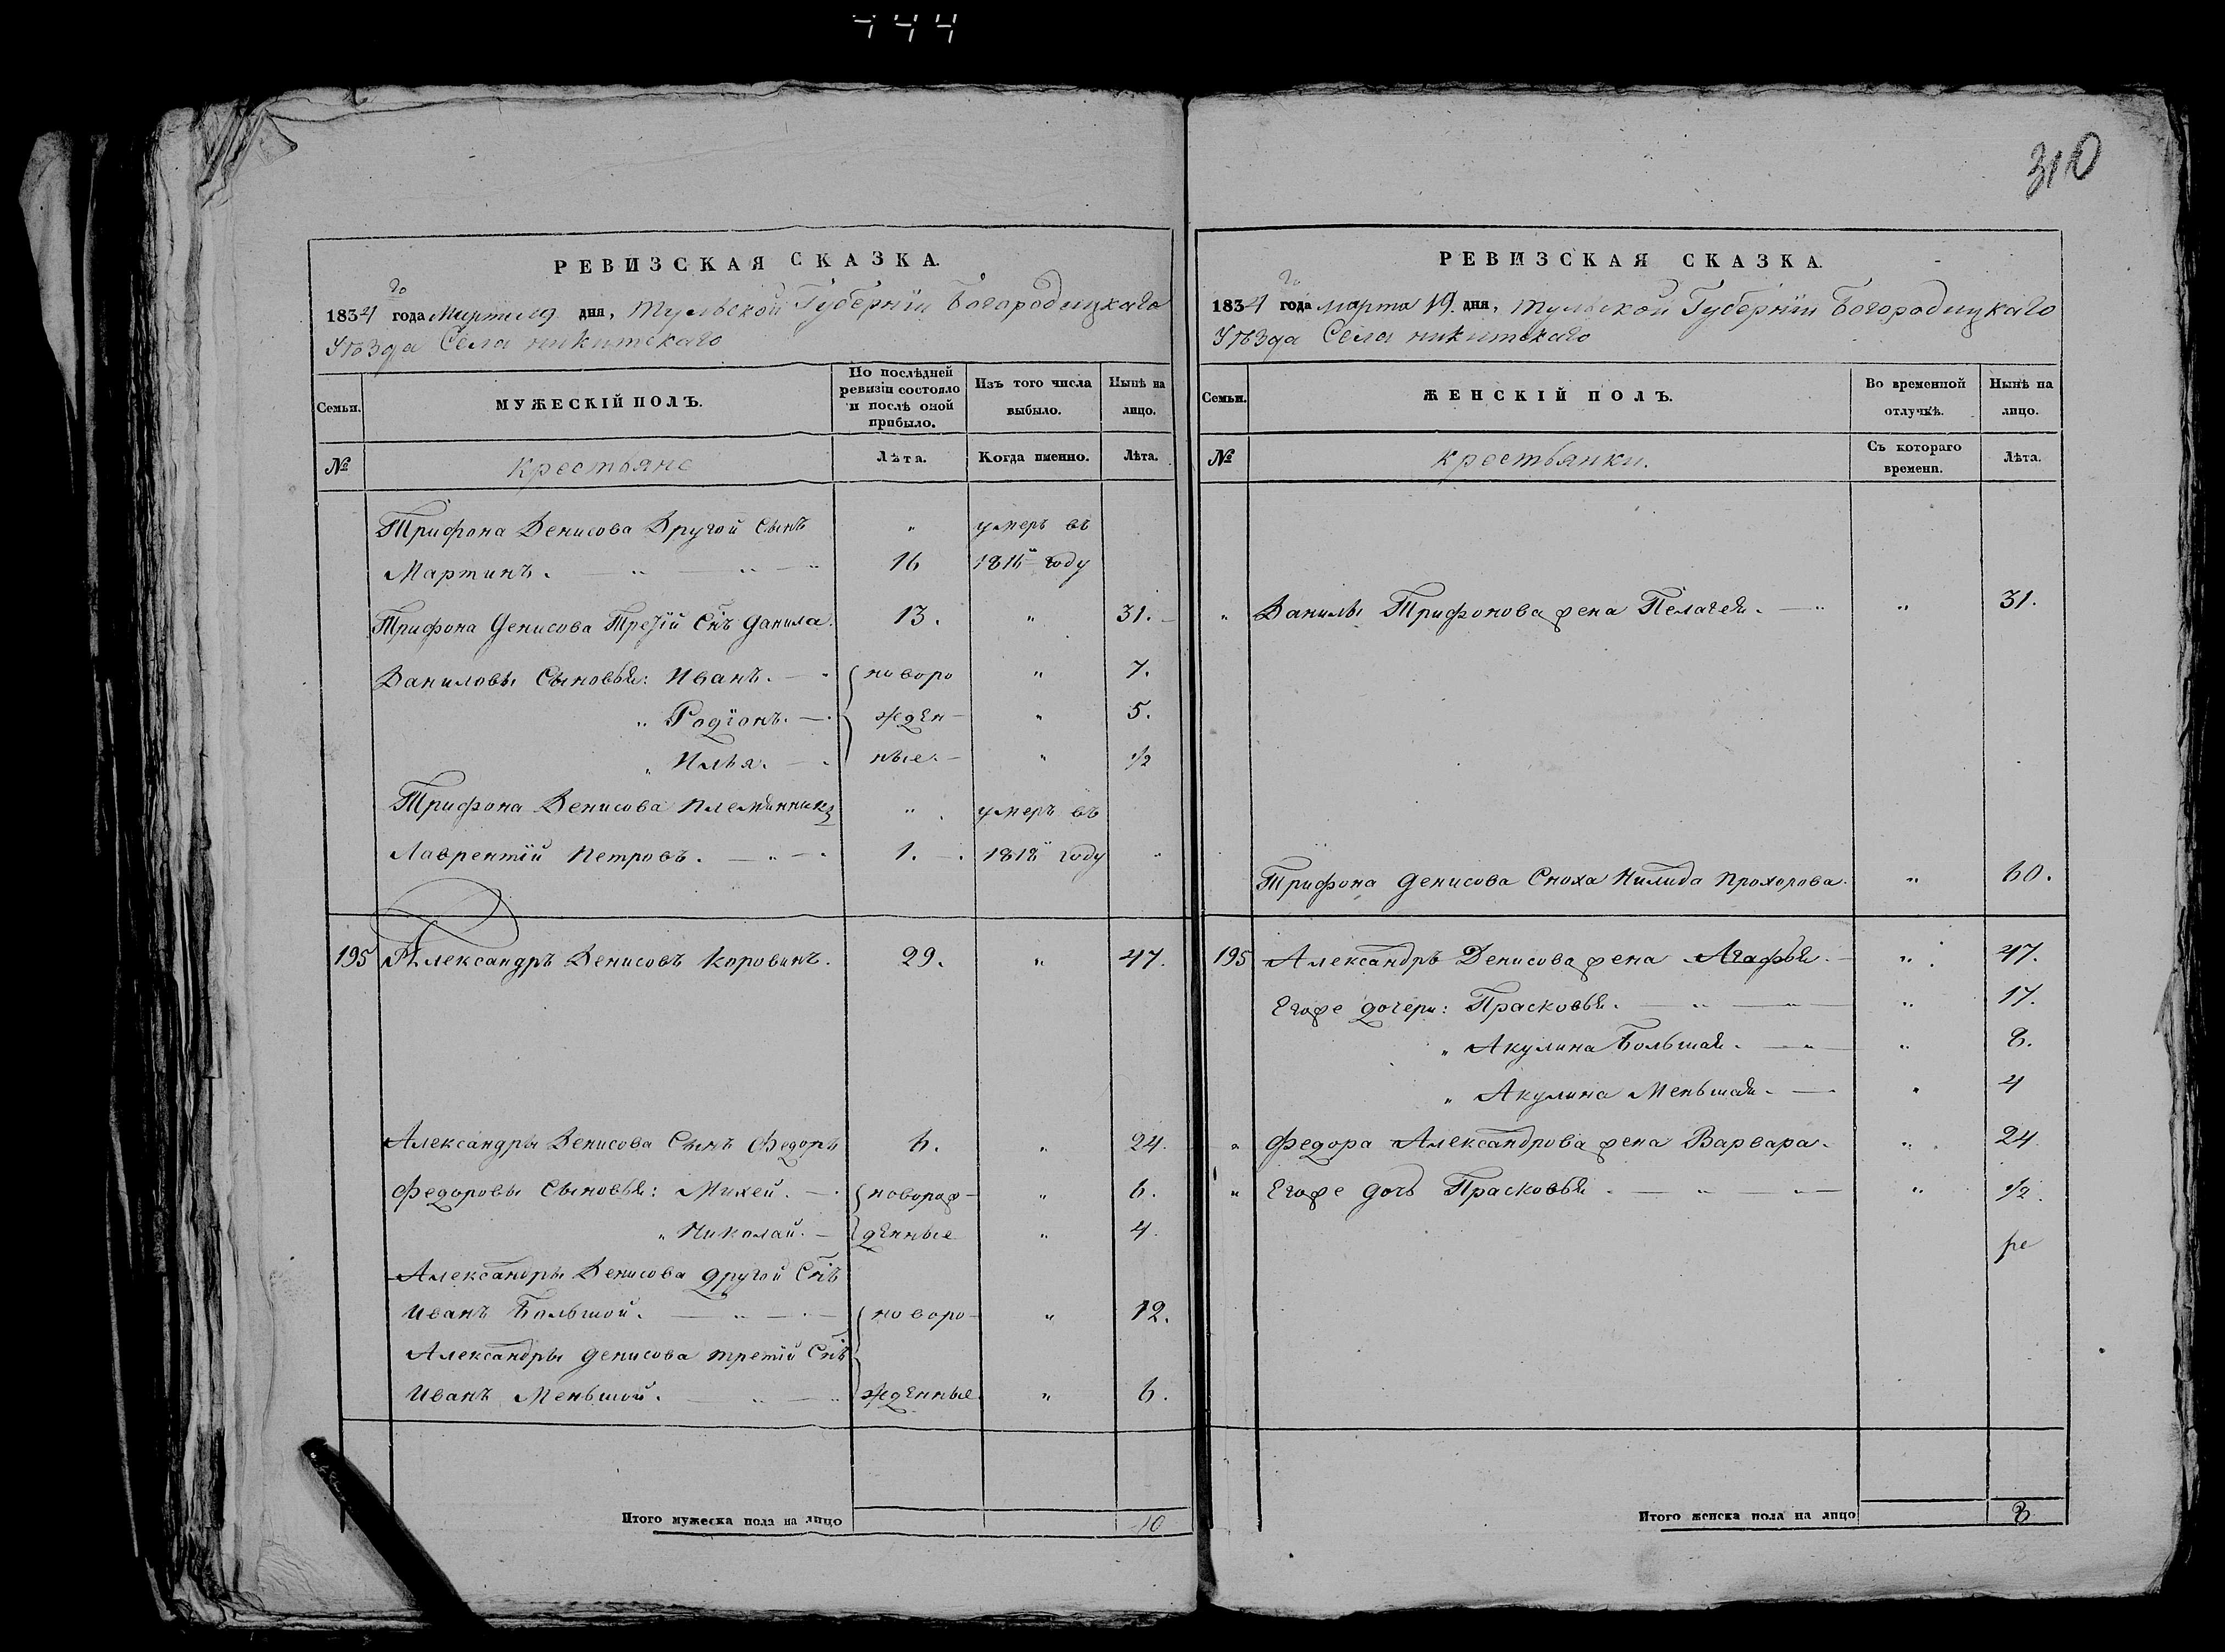 310
РЕВИЗСКАЯ СКАЗКА.
1834го года Марта 19 дня, Тульской Губернiи Богородицкаго
Уѣзда Села Никитскаго
Семьи.
МУЖЕСКІЙ ПОЛЪ.
По послѣдней ревизіи состояло и послѣ оной прибыло.
Изъ того числа выбыло.
Нынѣ на лицо.
№
Крестьяне
Лѣта.
Когда именно.
Лѣта.
Трифона Денисова Другой Сынъ " умеръ въ
Мартинъ. 16 1816м году
Трифона Денисова Третiй Снъ Данила. 13. " 31.
Даниловы Сыновья: Иванъ. новоро " 7.
" Родiонъ. жден " 5.
" Илья. ные. " 1/2
Трифона Денисова племянникъ " умеръ въ
Лаврентiй Петровъ. 1. 1818м году
195 Александръ Денисовъ Коровинъ. 29. " 47.
Александры Денисова Сынъ Федоръ 6. " 24.
Федоровы Сыновья: Михей. новорож " 6.
" Николай. денные " 4.
Александры Денисова другой Снъ
Иванъ Большой. новоро " 12.
Александры Денисова третiй Снъ
Иванъ Меньшой. жденные " 6.
Итого мужеска пола на лицо 10
РЕВИЗСКАЯ СКАЗКА.
1834го года Марта 19. дня, Тульской Губернiи Богородицкаго
Уѣзда Села Никитскаго
Семьи.
ЖЕНСКІЙ ПОЛЪ.
Во временной отлучкѣ.
Нынѣ на лицо.
№
Крестьянки.
Съ котораго времени.
Лѣта.
" Данилы Трифонова жена Пелагея. " 31.
Трифона Денисова Сноха Нимида Прохорова. " 60.
195 Александръ Денисова жена Агафья. " 47.
Егоже дочери: Прасковья. " 17.
" Акулина Большая. " 8.
" Акулина Меньшая. " 4
" Федора Александрова жена Варвара. " 24
" Егоже дочь Прасковья. " 1/2.
Итого женска пола на лицо 8